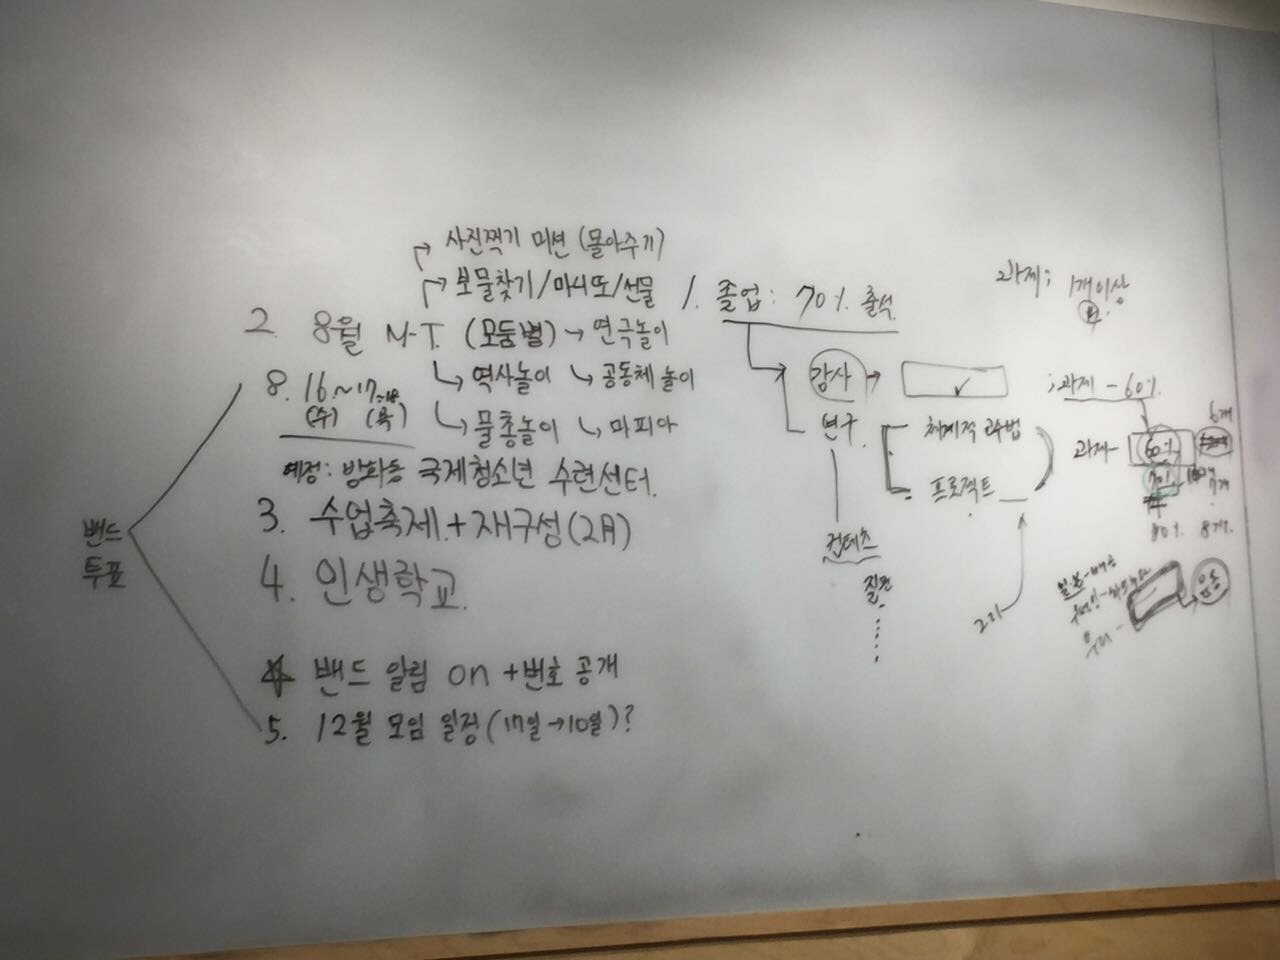 사진찍기 미션 (몰아주기)
보물찾기/마니또/선물
2. 8월 M.T. (모둠별) → 연극놀이
8. 16~17
(수) (목)
역사놀이 공동체 놀이
물총놀이 마피아
예정: 방화동 국제청소년 수련센터.
3. 수업축제 + 재구성(2A)
4. 인생학교
밴드
투표
밴드 알림 on + 번호 공개
5. 12월 모임 일정 (17일→10일)?
1. 졸업: 70% 출석
감사 →
연구
체계적
프로젝트
컨텐츠
질문
2기
과제; 1개이상
;과제 - 60%
6개
과제- 60%
70%
7개
80% 8개
우리 -
운동